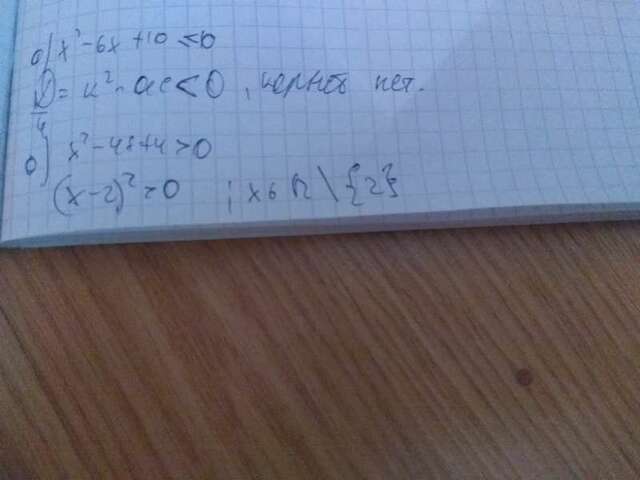 а) x² - 6x + 10 ≤ 0
D/4 = k² - ac < 0, корней нет.
б) x² - 4x + 4 > 0
(x - 2)² > 0 ; x ∈ R \ {2}